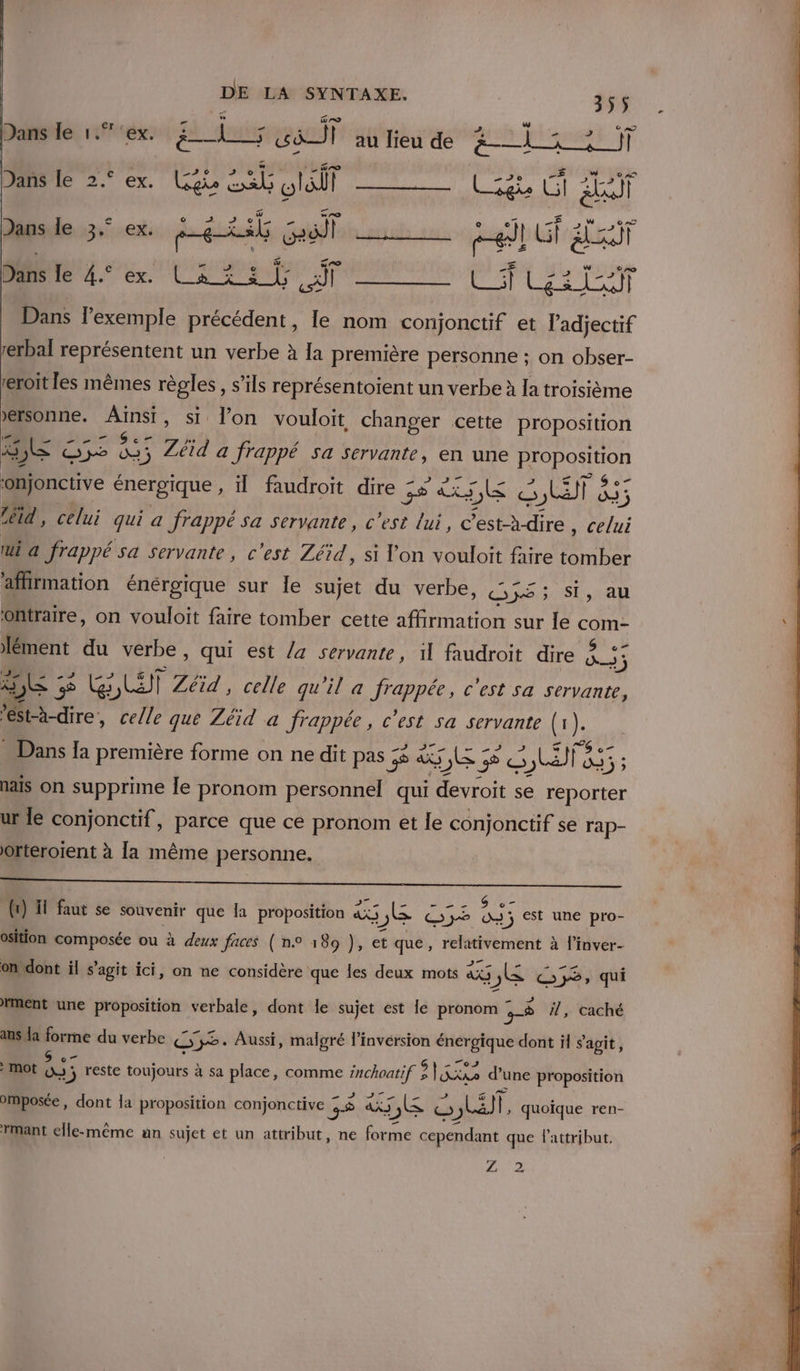 DE LA SYNTAXE. 355
Dans le 1.er ex. اَلَّذِى بَلَّغَ au lieu de اَلْمُبَلِّغُ
Dans le 2.e ex. اَللَّذَانِ بَلَّغْتُ مِنْهُمَا ——— اَلْمُبَلِّغُ أَنَا مِنْهُمَا
Dans le 3.e ex. اَلَّذِينَ ——— اَلْمُبَلِّغُ أَنَا إِلَيْهِمْ
Dans le 4.e ex. اَلَّتِى بَلَّغْتُهَا ——— اَلْمُبَلِّغُهَا أَنَا
Dans l'exemple précédent, le nom conjonctif et l'adjectif
verbal représentent un verbe à la première personne ; on obser-
veroit les mêmes règles, s'ils représentoient un verbe à la troisième
personne. Ainsi, si l'on vouloit changer cette proposition
زَيْدٌ ضَرَبَ جَارِيَتَهُ Zéïd a frappé sa servante, en une proposition
conjonctive énergique, il faudroit dire زَيْدٌ اَلضَّارِبُ جَارِيَتَهُ هُوَ
Zéïd, celui qui a frappé sa servante, c'est lui, c'est-à-dire, celui
qui a frappé sa servante, c'est Zéïd, si l'on vouloit faire tomber
l'affirmation énérgique sur le sujet du verbe, ضَرَبَ ; si, au
contraire, on vouloit faire tomber cette affirmation sur le com-
plément du verbe, qui est la servante, il faudroit dire زَيْدٌ
اَلضَّارِبُهَا هُوَ جَارِيَتُهُ Zéïd, celle qu'il a frappée, c'est sa servante,
c'est-à-dire, celle que Zéïd a frappée, c'est sa servante (1).
Dans la première forme on ne dit pas زَيْدٌ اَلضَّارِبُ هُوَ جَارِيَتَهُ هُوَ ;
mais on supprime le pronom personnel qui devroit se reporter
sur le conjonctif, parce que ce pronom et le conjonctif se rap-
porteroient à la même personne.
(1) Il faut se souvenir que la proposition زَيْدٌ ضَرَبَ جَارِيَتَهُ est une pro-
position composée ou à deux faces (n.º 189), et que, relativement à l'inver-
sion dont il s'agit ici, on ne considère que les deux mots ضَرَبَ جَارِيَتَهُ, qui
forment une proposition verbale, dont le sujet est le pronom هُوَ il, caché
dans la forme du verbe ضَرَبَ. Aussi, malgré l'inversion énergique dont il s'agit,
le mot زَيْدٌ reste toujours à sa place, comme inchoatif مُبْتَدَأٌ d'une proposition
composée, dont la proposition conjonctive اَلضَّارِبُ جَارِيَتَهُ هُوَ, quoique ren-
fermant elle-même un sujet et un attribut, ne forme cependant que l'attribut.
Z 2